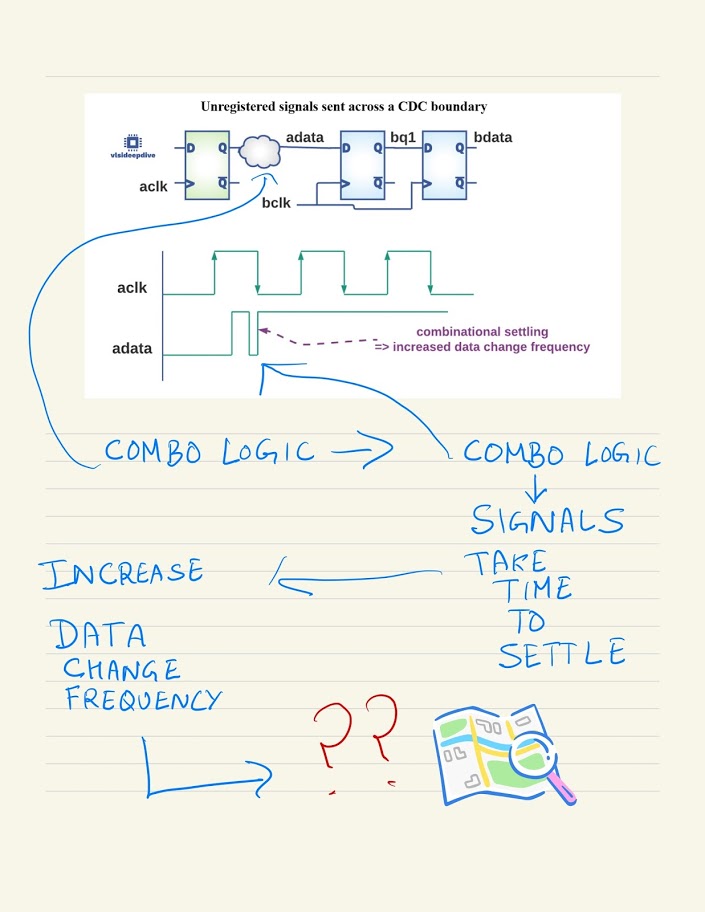 Unregistered signals sent across a CDC boundary
vlsideepdive
D
Q
adata
D
Q
bq1
D
Q
bdata
aclk
Q
Q
Q
bclk
aclk
adata
combinational settling
=> increased data change frequency
COMBO LOGIC →
COMBO LOGIC
↓
SIGNALS
TAKE
TIME
TO
SETTLE
←
INCREASE
DATA
CHANGE
FREQUENCY
→
??